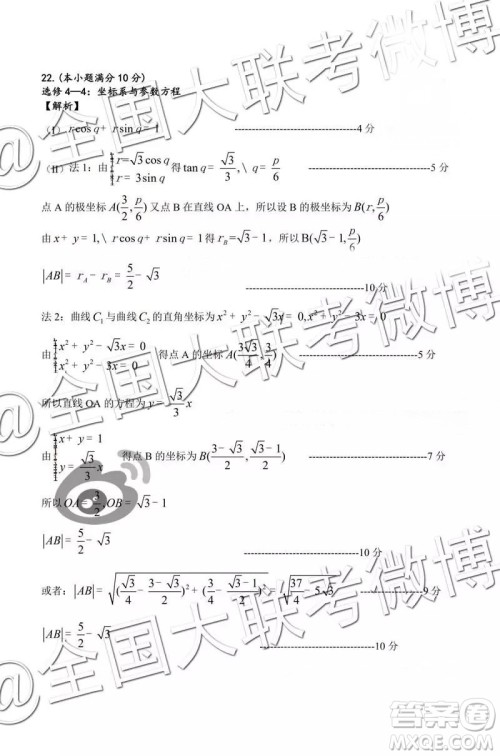 22.(本小题满分 10 分)
选修 4—4：坐标系与参数方程
【解析】
(I) r cos q + r sin q = 1 ----------4 分
(II) 法 1：由 { r = √3 cos q, r = 3 sin q 得 tan q = √3/3, \ q = p/6 ----------5 分
点 A 的极坐标 A(3/2, p/6) 又点 B 在直线 OA 上，所以设 B 的极坐标为 B(r, p/6)
由 x + y = 1, \ r cos q + r sin q = 1 得 r_B = √3 - 1，所以 B(√3 - 1, p/6)
|AB| = r_A - r_B = 5/2 - √3 ----------10 分
法 2：曲线 C₁ 与曲线 C₂ 的直角坐标为 x² + y² - √3x = 0, x² + y² - 3x = 0
由 { x² + y² - √3x = 0, x² + y² - 3x = 0 得点 A 的坐标 A(3√3/4, 3/4) ----------5 分
所以直线 OA 的方程为 y = √3/3 x
由 { x + y = 1, y = √3/3 x 得点 B 的坐标为 B((3-√3)/2, (√3-1)/2) ----------7 分
所以 OA = 3/2, OB = √3 - 1
|AB| = 5/2 - √3 ----------10 分
或者: |AB| = √((√3/4 - (3-√3)/2)² + (3/4 - (√3-1)/2)²) = √(37/4 - 5√3) ----------9 分
|AB| = 5/2 - √3 ----------10 分
@全国大联考微博
@全国大联考微博
@全国大联考微博
答案卷
MXQE.COM